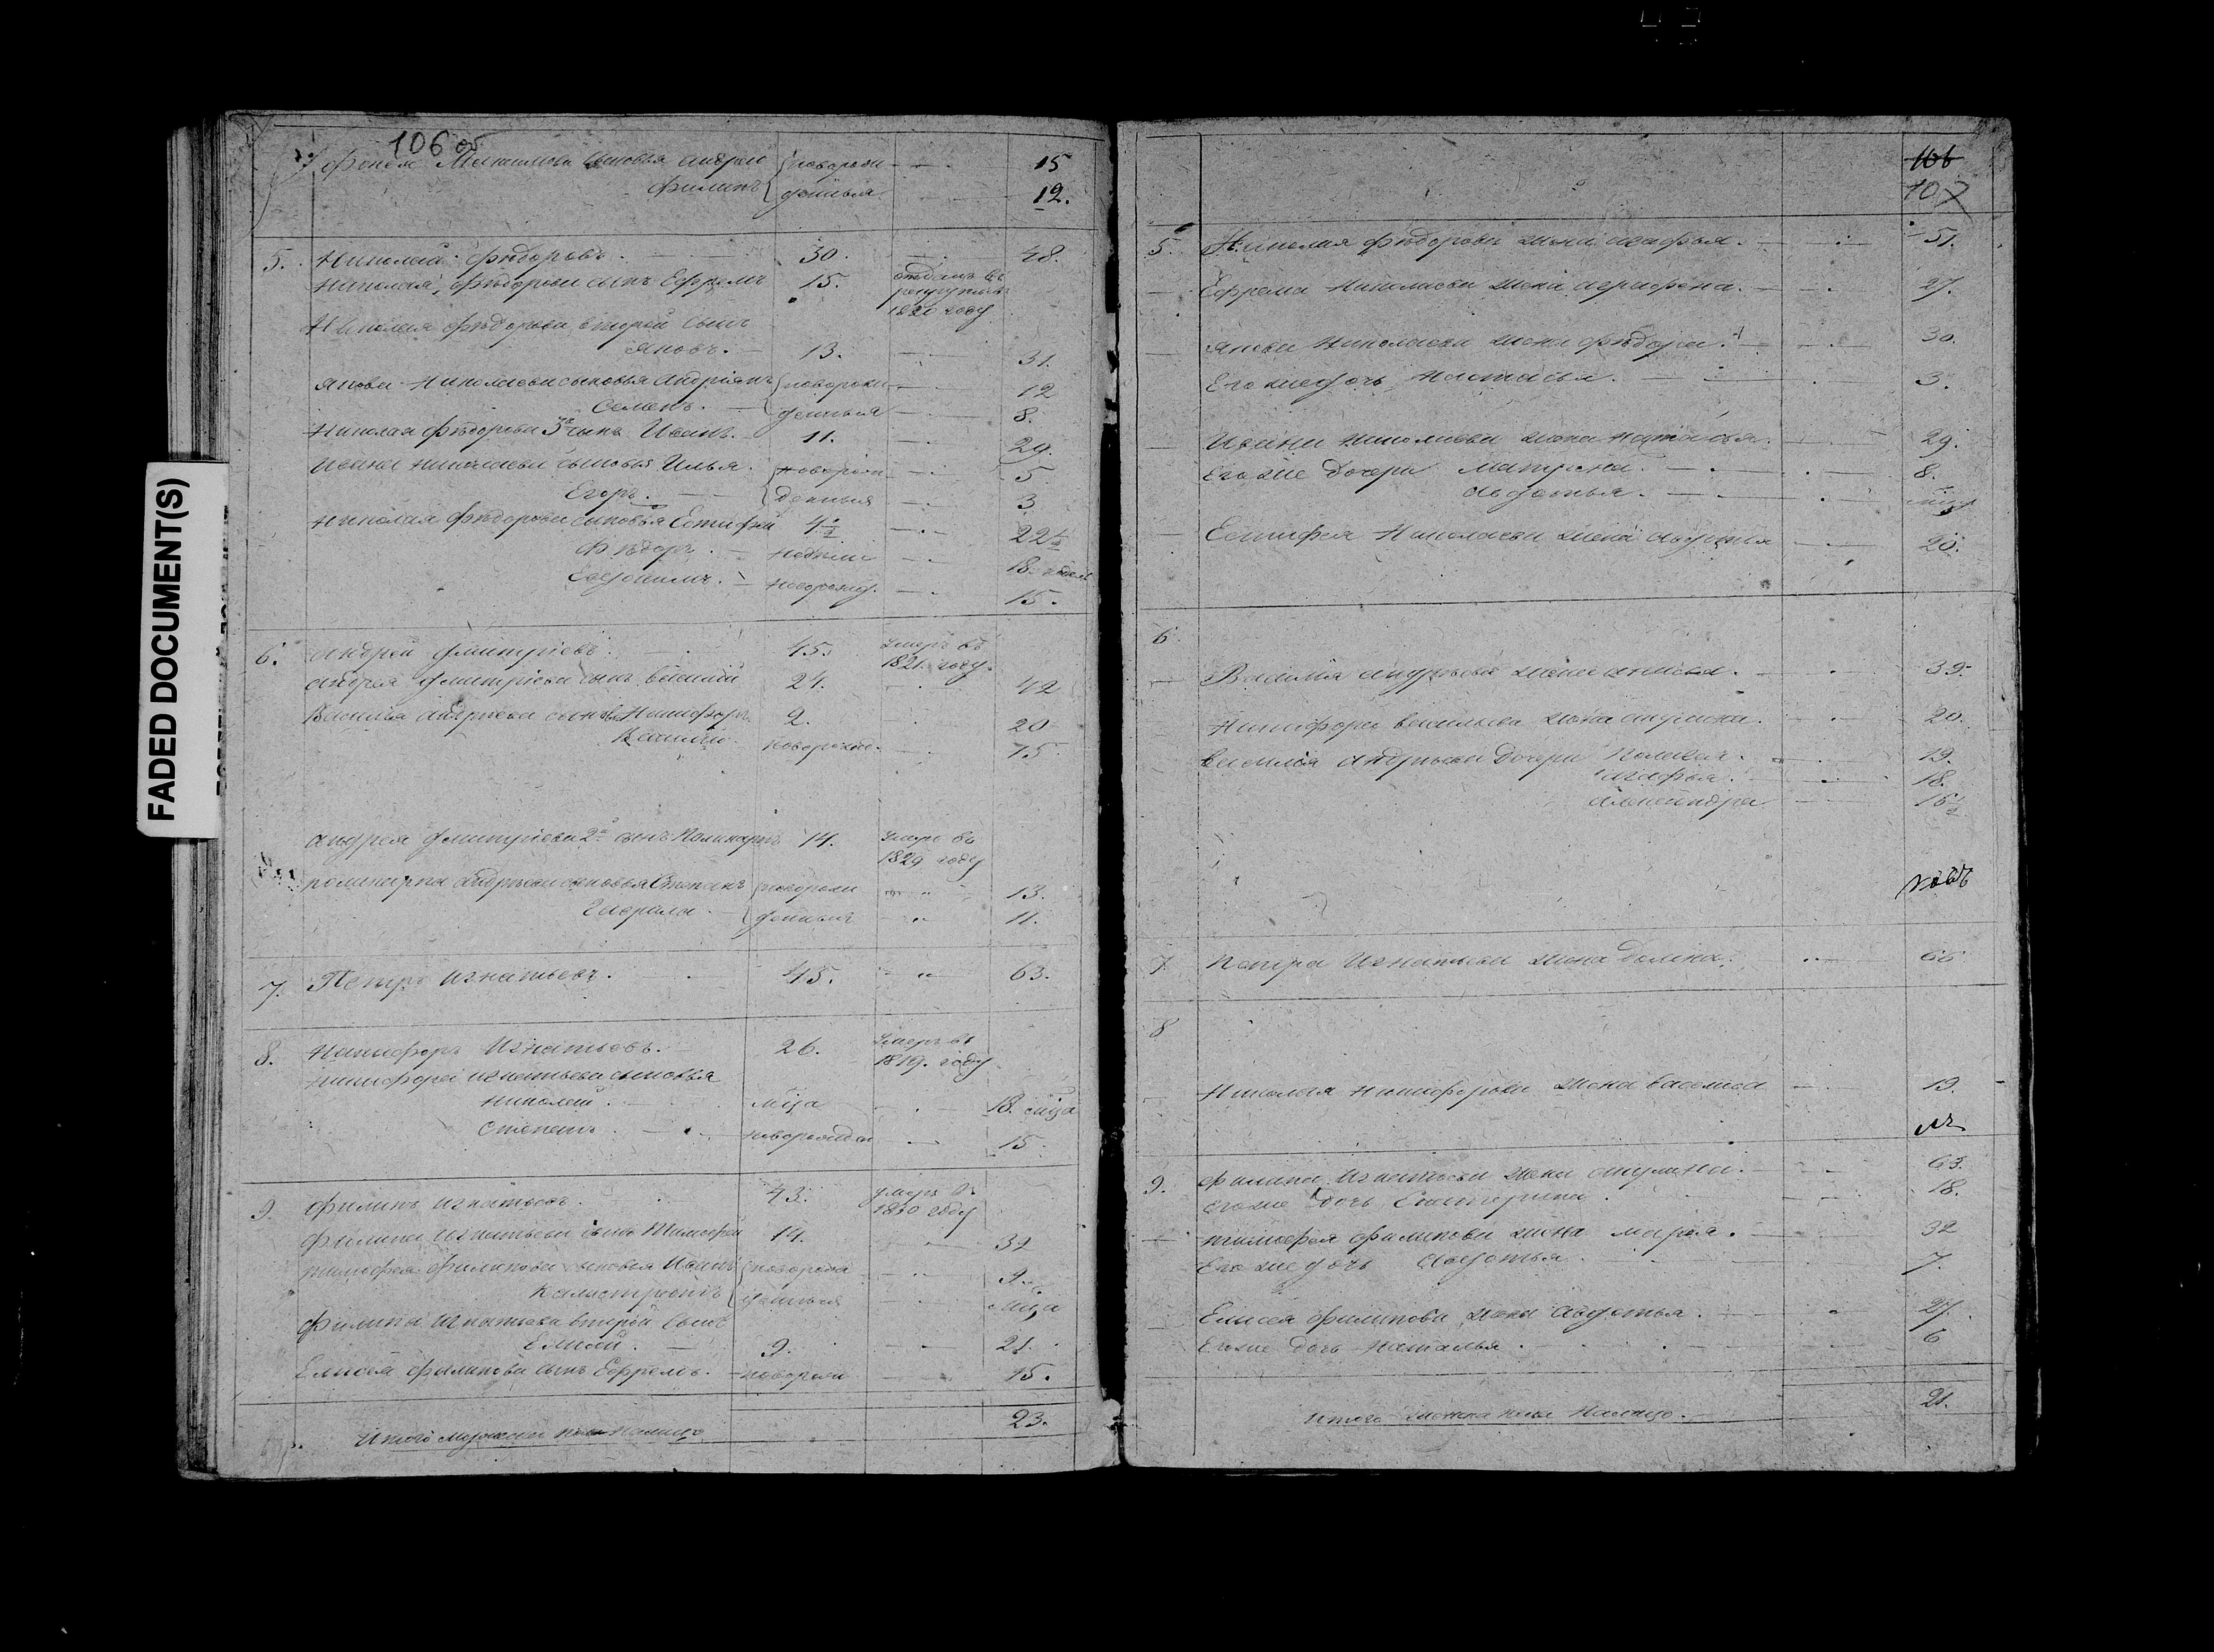 FADED DOCUMENT(S)
106 об
сыновья Андрей новорож 15
Филипъ денныя 12.
5. Николай Фёдоровъ. 30. 48.
Николая Фёдорова сынъ Ефремъ 15. отданъ въ рекруты въ 1820 году
Николая Фёдорова второй сынъ
Яковъ. 13. 31.
Якова Николаева сыновья Андріанъ новорож 12
Семенъ. денныя 8.
Николая Фёдорова 3й сынъ Иванъ. 11. 29.
Ивана Николаева сыновья Илья. новорож 5
Егоръ. денныя 3
Николая Фёдорова сыновья Естифей 4½ 22½
Фёдоръ. недели 18. недель
новорожд. 15.
6. Андрей Дмитріевъ. 45. умеръ въ 1821. году.
Андрея Дмитріева сынъ Василій 24. 42
Василья Андреева сынове Никифоръ. 2. 20
Василій. новорожд. 15
Андрея Дмитріева 2й сынъ Поликарпъ 14. умеръ въ 1829 году
Поликарпа Андреева сыновья Степанъ новорож 13.
Гаврила. денныя 11.
7. Петръ Игнатьевъ. 45. 63.
8. Никифоръ Игнатьевъ. 26. умеръ въ 1819. году
Никифора Игнатьева сыновья
Николай. м҃ца 18. м҃ца
Степанъ. новорожден 15.
9. Филипъ Игнатьевъ. 43. умеръ въ 1830 году
Филипа Игнатьева сынъ Тимофей 14. 32
Тимофея Филипова сыновья Иванъ новорож 9.
денныя м҃ца
Филипа Игнатьева второй сынъ
Елисей. 9. 21.
Елисея Филипова сынъ Ефремъ. новорож 15.
Итого мужеска пола налицо 23.
106
107
5. Николая Фёдорова жена Агафья. 51.
Ефрема Николаева жена Аграфена. 27.
Якова Николаева жена Фёдора. 30.
Его же дочь Настасья. 3.
Ивана Николаева жена Наталья. 29.
Его же дочери Матрена. 8.
Авдотья.
Естифея Николаева жена 20.
6
Василія Андреева жена Анисья. 39.
Никифора Васильева жена Акулина. 20.
Василья Андреева дочери Пелагея. 19.
Агафья. 18.
Александра 16½
7. Петра Игнатьева жена 65
8
Николая Никифорова жена Василиса 19.
9. Филипа Игнатьева жена Акулина. 63.
Его же дочь Екатерина. 18.
Тимофея Филипова жена Марья. 32
Его же дочь Авдотья. 7.
Елисея Филипова жена Авдотья. 27.
Его же дочь Наталья. 6
Итого женска пола налицо. 21.